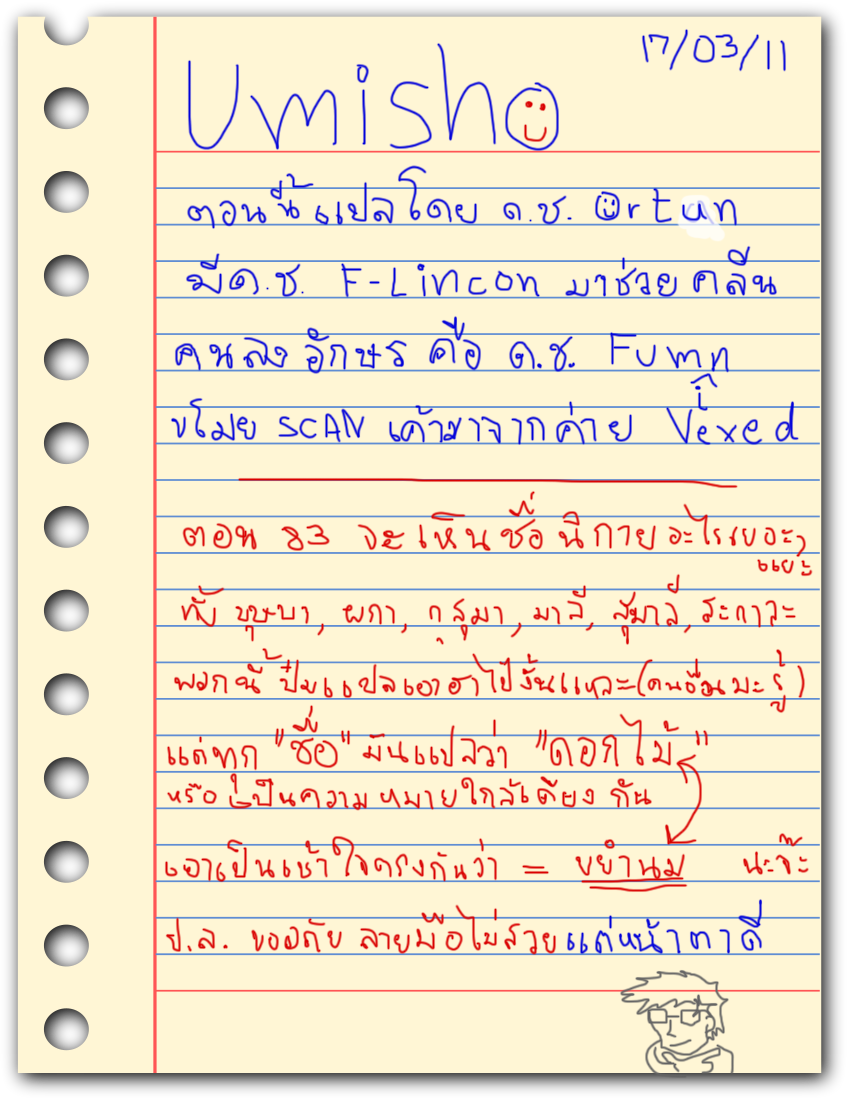 17/03/11
Umisho
ตอนนี้แปลโดย ด.ช. ortun
มีด.ช. F-Lincon มาช่วย คลีน
คนลง อักษร คือ ด.ช. Fumn
ขโมย SCAN เค้ามาจากค่าย Vexed
ตอน 83 จะเห็นชื่อนิกายอะไรเยอะๆ
แยะ
ทั้ง บุษบา, ผกา, กุสุมา, มาลี, สุมาลี, ระกาละ
พวกนี้ ปั๋มแปลเอาฮาไปงั้นแหละ(คนอื่นมะรู้)
แต่ทุก "ชื่อ" มันแปลว่า "ดอกไม้"
หรือ เป็นความหมายใกล้เคียง กัน
เอาเป็นเข้าใจตรงกันว่า = ขยำนม นะจ๊ะ
ป.ล. ขออภัย ลายมือไม่สวยแต่หน้าตาดี